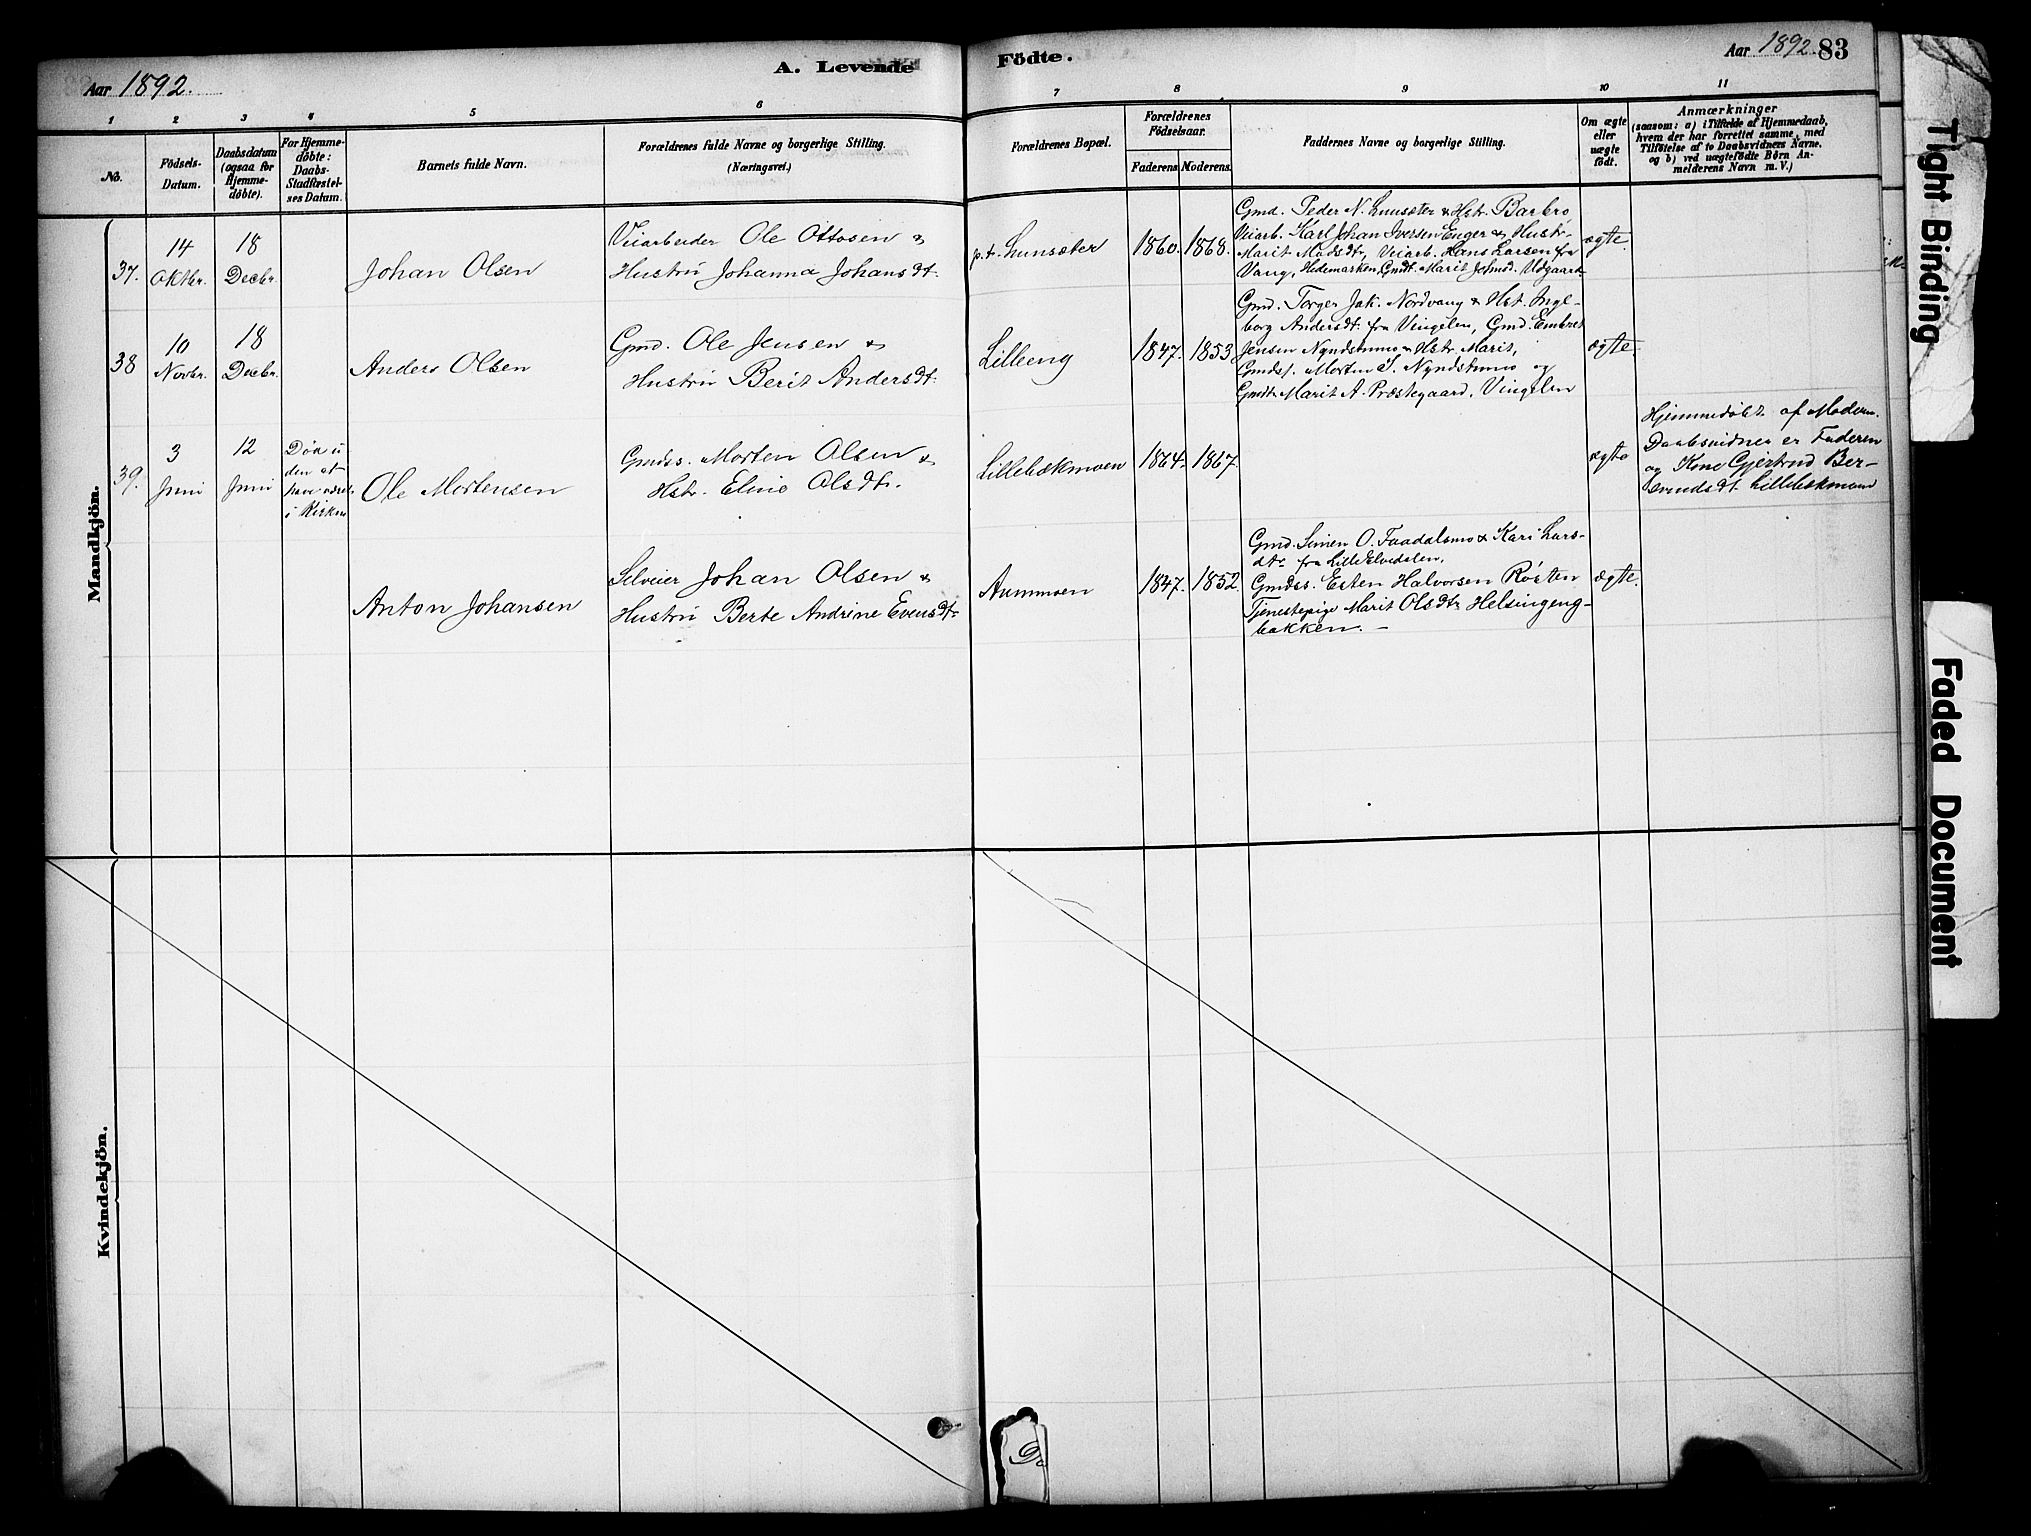 Aar 1892.
A. Levende
Födte.
Aar 1892. 83
1 2 3 4 5 6
7 8 9 10 11
No.
Födsels-
Datum.
Daabsdatum
(ogsaa for
Hjemme-
döbte).
For Hjemme-
döbte:
Daabs-
Stadfæstel-
ses Datum.
Barnets fulde Navn.
Forældrenes fulde Navne og borgerlige Stilling.
(Næringsvei.)
Forældrenes Bopæl.
Forældrenes
Födselsaar.
Faderens Moderens.
Faddernes Navne og borgerlige Stilling.
Om ægte
eller
uægte
födt.
Anmærkninger
(saasom: a) i Tilfælde af Hjemmedaab,
hvem der har forrettet samme, med
Tilföielse af to Daabsvidners Navne,
og b) ved uægtefödte Börn An-
melderens Navn m. V.)
Mandkjön.
37.
14
Oktbr.
18
Decbr.
Johan Olsen
Veiarbeider Ole Ottosen &
Hustru Johanna Johansdt.
p.t. Lunsæter
1860. 1868.
Gmd. Peder N. Lunsæter & Hst. Barbro,
Veiarb. Karl Johan Iversen Enger & Hustr.
Marit Madsdt., Veiarb. Hans Larsen fra
Vang, Hedemarken, Gmdt. Marit Johnsd. Udgaard
ægte.
38
10
Novbr.
18
Decbr.
Anders Olsen
Gmd. Ole Jensen &
Hustru Berit Andersdt.
Lilleeng
1847. 1853
Gmd. Torger Jak. Nordvang & Hst. Inge-
borg Andersdt. fra Vingelen, Gmd. Embret
Jensen Nyndstumo & Hstr. Marit,
Gmdss. Morten J. Nyndstumo og
Gmdt. Marit A. Præstegaard, Vingelen
ægte.
39.
3
Juni
12
Juni
Død u
den at
have været
i Kirken
Ole Mortensen
Gmdss. Morten Olsen &
Hstr. Eline Olsdtr.
Lillebækmoen
1864. 1867.
ægte
Hjemmedøbt af Moderen.
Daabsvidner er Faderen
og Kone Gjertrud Ber-
svendsdt. Lillebækmoen
Anton Johansen
Selveier Johan Olsen &
Hustru Berte Andrine Evensdtr
Aummoen
1847. 1852.
Gmd. Simen O. Faadalsmo & Kari Lars-
dtr fra Lille Elvedalen,
Gmdss. Esten Halvorsen Røsten
Tjenestepige Marit Olsdtr Helsingeng-
bakken. –
ægte.
Kvindekjön.
Tight Binding
Faded Document